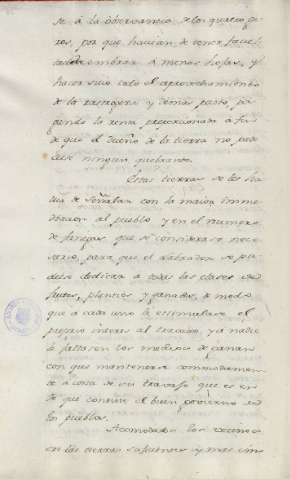 se á la observancia de los quatro gi
ros, por que havian de tener facul
tad de sembrar á menos hojas, y
hacer suio solo el aprovechamiento
de la rastrogera y demas pasto, pa
gando la renta proporcionada á fin
de que el dueño de la tierra no pade
ciese ningun quebranto.
Estas tierras se les ha
vian de señalar con la maior inme
diacion al pueblo y en el numero
de fanegas que se considerase nece
sario, para que el labrador se pu
diese dedicar á todas las clases de
frutos, plantios y ganados, de modo
que á cada uno le estimulase el
propio interes al trabajo, y á nadie
le faltasen los medios de ganar
con que mantenerse commodamen
te á costa de su travajo que es en
lo que consiste el buen govierno de
los pueblos.
Acomodados los vecinos
en las tierras y mas